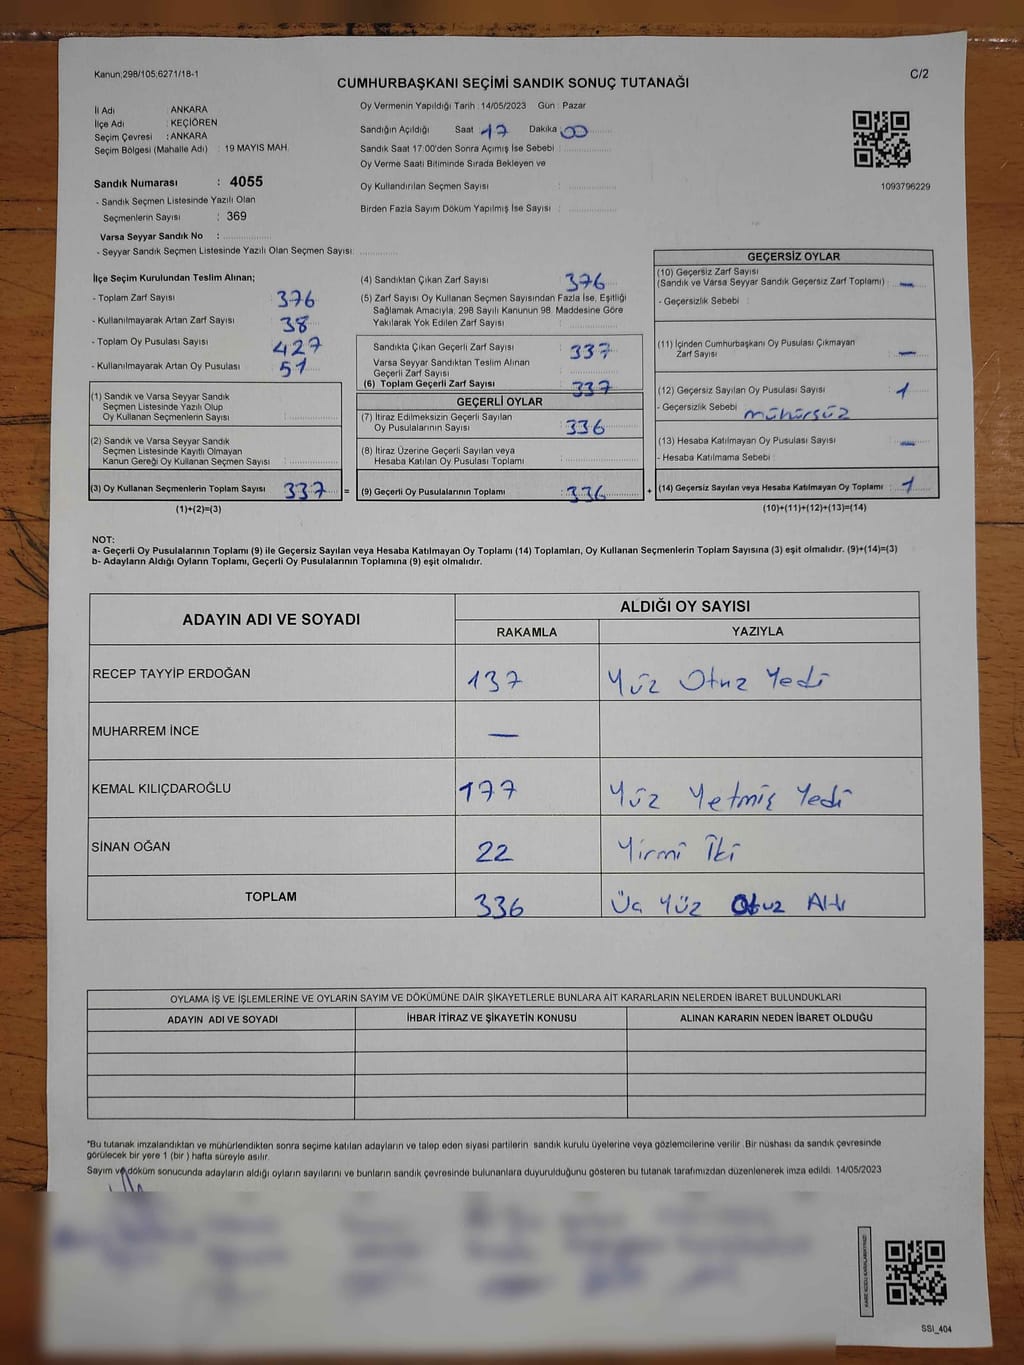 Kanun:298/105;6271/18-1
C/2
CUMHURBAŞKANI SEÇİMİ SANDIK SONUÇ TUTANAĞI
İl Adı : ANKARA
İlçe Adı : KEÇİÖREN
Seçim Çevresi : ANKARA
Seçim Bölgesi (Mahalle Adı) : 19 MAYIS MAH.
Sandık Numarası : 4055
- Sandık Seçmen Listesinde Yazılı Olan
Seçmenlerin Sayısı : 369
Varsa Seyyar Sandık No :
- Seyyar Sandık Seçmen Listesinde Yazılı Olan Seçmen Sayısı:
Oy Vermenin Yapıldığı Tarih : 14/05/2023 Gün : Pazar
Sandığın Açıldığı Saat 17 Dakika 00
Sandık Saat 17:00'den Sonra Açımış İse Sebebi :
Oy Verme Saati Bitiminde Sırada Bekleyen ve
Oy Kullandırılan Seçmen Sayısı :
Birden Fazla Sayım Döküm Yapılmış İse Sayısı :
1093796229
İlçe Seçim Kurulundan Teslim Alınan;
- Toplam Zarf Sayısı : 376
- Kullanılmayarak Artan Zarf Sayısı : 38
- Toplam Oy Pusulası Sayısı : 427
- Kullanılmayarak Artan Oy Pusulası : 51
(1) Sandık ve Varsa Seyyar Sandık
Seçmen Listesinde Yazılı Olup
Oy Kullanan Seçmenlerin Sayısı :
(2) Sandık ve Varsa Seyyar Sandık
Seçmen Listesinde Kayıtlı Olmayan
Kanun Gereği Oy Kullanan Seçmen Sayısı :
(3) Oy Kullanan Seçmenlerin Toplam Sayısı : 337 =
(1)+(2)=(3)
(4) Sandıktan Çıkan Zarf Sayısı : 376
(5) Zarf Sayısı Oy Kullanan Seçmen Sayısından Fazla İse, Eşitliği
Sağlamak Amacıyla, 298 Sayılı Kanunun 98. Maddesine Göre
Yakılarak Yok Edilen Zarf Sayısı :
Sandıkta Çıkan Geçerli Zarf Sayısı : 337
Varsa Seyyar Sandıktan Teslim Alınan
Geçerli Zarf Sayısı :
(6) Toplam Geçerli Zarf Sayısı : 337
GEÇERLİ OYLAR
(7) İtiraz Edilmeksizin Geçerli Sayılan
Oy Pusulalarının Sayısı : 336
(8) İtiraz Üzerine Geçerli Sayılan veya
Hesaba Katılan Oy Pusulası Toplamı :
(9) Geçerli Oy Pusulalarının Toplamı : 336 +
GEÇERSİZ OYLAR
(10) Geçersiz Zarf Sayısı
(Sandık ve Varsa Seyyar Sandık Geçersiz Zarf Toplamı) : —
- Geçersizlik Sebebi :
(11) İçinden Cumhurbaşkanı Oy Pusulası Çıkmayan
Zarf Sayısı : —
(12) Geçersiz Sayılan Oy Pusulası Sayısı : 1
- Geçersizlik Sebebi mühürsüz
(13) Hesaba Katılmayan Oy Pusulası Sayısı : —
- Hesaba Katılmama Sebebi :
(14) Geçersiz Sayılan veya Hesaba Katılmayan Oy Toplamı : 1
(10)+(11)+(12)+(13)=(14)
NOT:
a- Geçerli Oy Pusulalarının Toplamı (9) ile Geçersiz Sayılan veya Hesaba Katılmayan Oy Toplamı (14) Toplamları, Oy Kullanan Seçmenlerin Toplam Sayısına (3) eşit olmalıdır. (9)+(14)=(3)
b- Adayların Aldığı Oyların Toplamı, Geçerli Oy Pusulalarının Toplamına (9) eşit olmalıdır.
ADAYIN ADI VE SOYADI ALDIĞI OY SAYISI
RAKAMLA YAZIYLA
RECEP TAYYİP ERDOĞAN 137 Yüz Otuz Yedi
MUHARREM İNCE —
KEMAL KILIÇDAROĞLU 177 Yüz Yetmiş Yedi
SİNAN OĞAN 22 Yirmi İki
TOPLAM 336 Üç Yüz Otuz Altı
OYLAMA İŞ VE İŞLEMLERİNE VE OYLARIN SAYIM VE DÖKÜMÜNE DAİR ŞİKAYETLERLE BUNLARA AİT KARARLARIN NELERDEN İBARET BULUNDUKLARI
ADAYIN ADI VE SOYADI İHBAR İTİRAZ VE ŞİKAYETİN KONUSU ALINAN KARARIN NEDEN İBARET OLDUĞU
*Bu tutanak imzalandıktan ve mühürlendikten sonra seçime katılan adayların ve talep eden siyasi partilerin sandık kurulu üyelerine veya gözlemcilerine verilir. Bir nüshası da sandık çevresinde
görülecek bir yere 1 (bir ) hafta süreyle asılır.
Sayım ve döküm sonucunda adayların aldığı oyların sayılarını ve bunların sandık çevresinde bulunanlara duyurulduğunu gösteren bu tutanak tarafımızdan düzenlenerek imza edildi. 14/05/2023
SSI_404